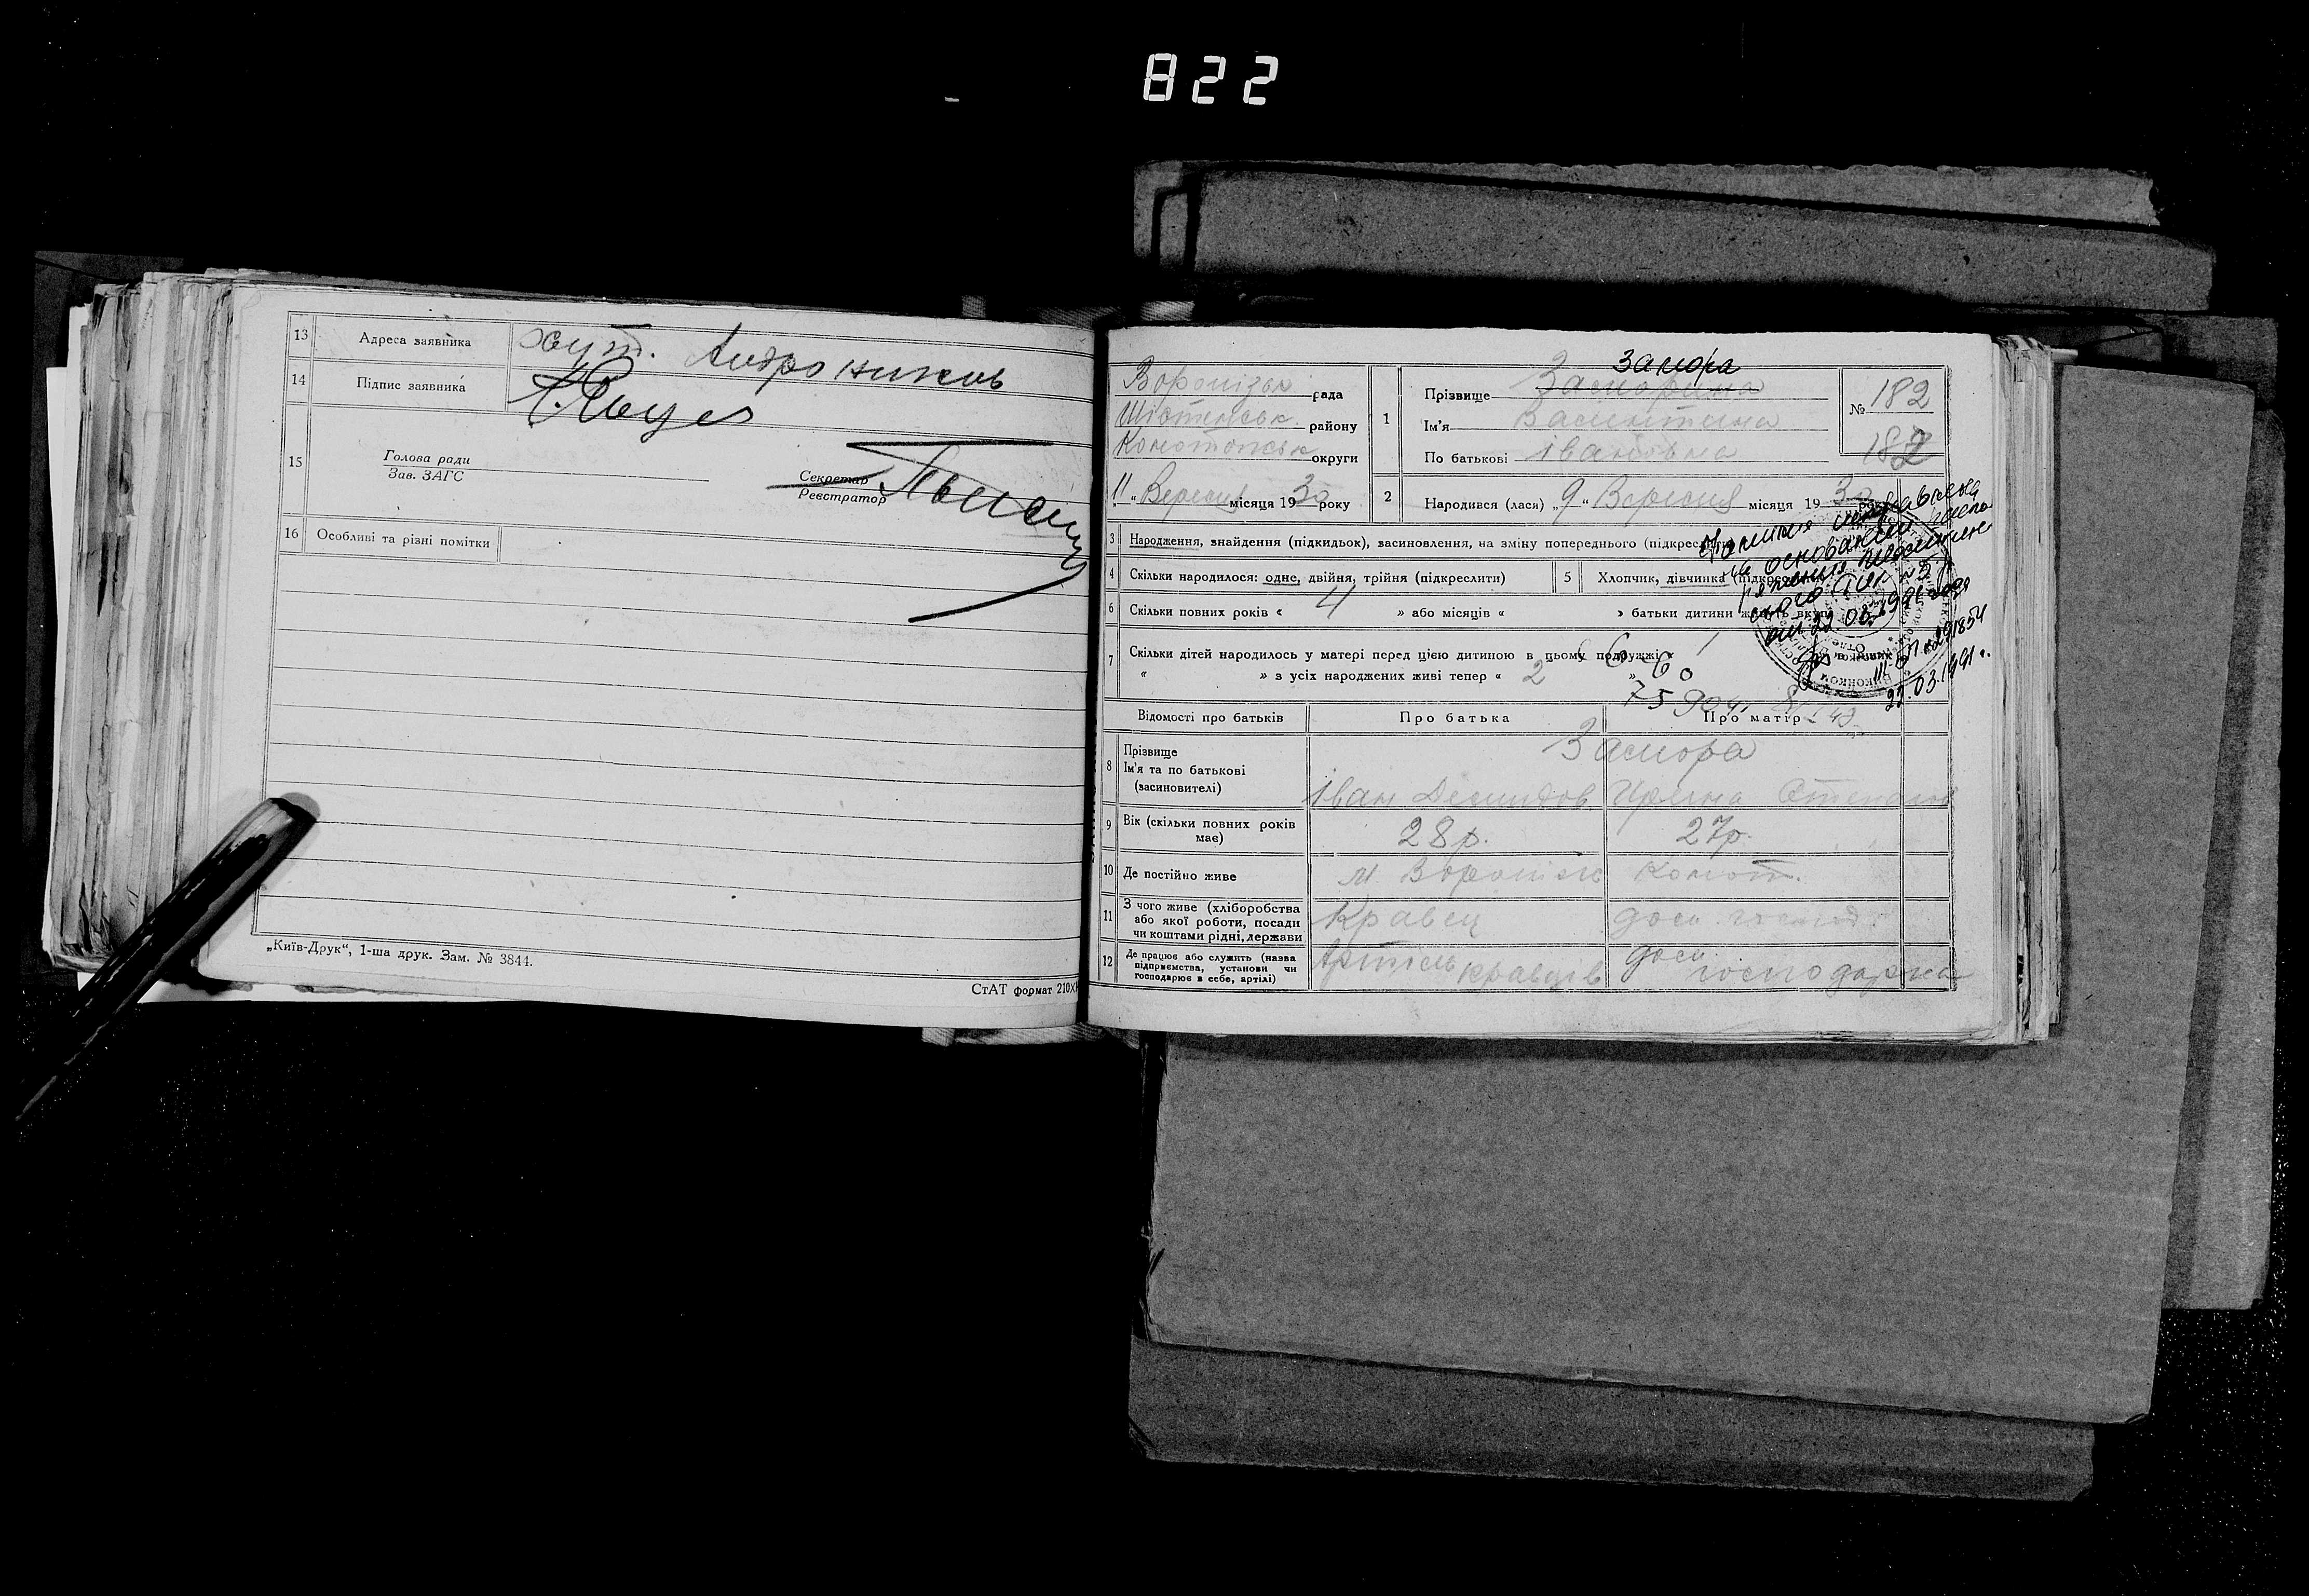 822
13 Адреса заявника хут. Андроников
14 Підпис заявника
15 Голова ради
Зав. ЗАГС
Секретар
Реєстратор
16 Особливі та різні помітки
„Київ-Друк“, 1-ша друк. Зам. № 3844.
СтАТ формат 210х
Воронізьк рада
Шостенськ району
Конотопськ округи
11 „ Вересня місяця 1930 року
Замора
1 Прізвище
Ім'я Валентина
По батькові Івановна
№ 182
182
2 Народився (лася) „ 9 “ Вересня місяця 1930
3 Народження, знайдення (підкидьок), засиновлення, на зміну попереднього
4 Скільки народилося: одне, двійня, трійня (підкреслити)
5 Хлопчик, дівчинка
6 Скільки повних років « 4 » або місяців « » батьки дитини
7 Скільки дітей народилось у матері перед цією дитиною в цьому подружжі «
« » з усіх народжених живі тепер « 2 »
исправлена
на основании
от 22.03.1991 года
22.03.1991 г.
Відомості про батьків Про батька Про матір
8 Прізвище
Ім'я та по батькові
(засиновителі)
Замора
Іван Демидов
9 Вік (скільки повних років
має) 28 р. 27 р.
10 Де постійно живе м. Вороніж
11 З чого живе (хліборобства
або якої роботи, посади
чи коштами рідні, держави
Кравец
12 Де працює або служить (назва
підприємства, установи чи
господарює в себе, артілі)
Артіль кравців
дом. господарка